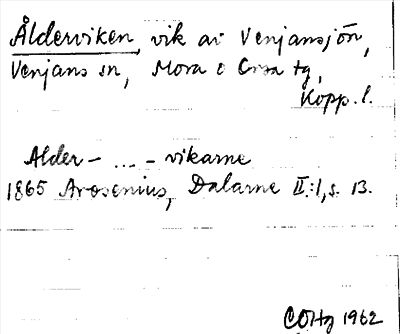 Ålderviken, vik av Venjansjön,
Venjans sn, Mora o Orsa tg,
Kopp. l.
Alder- ... - vikarne
1865 Arosenius, Dalarne II:1, s. 13.
COHg 1962